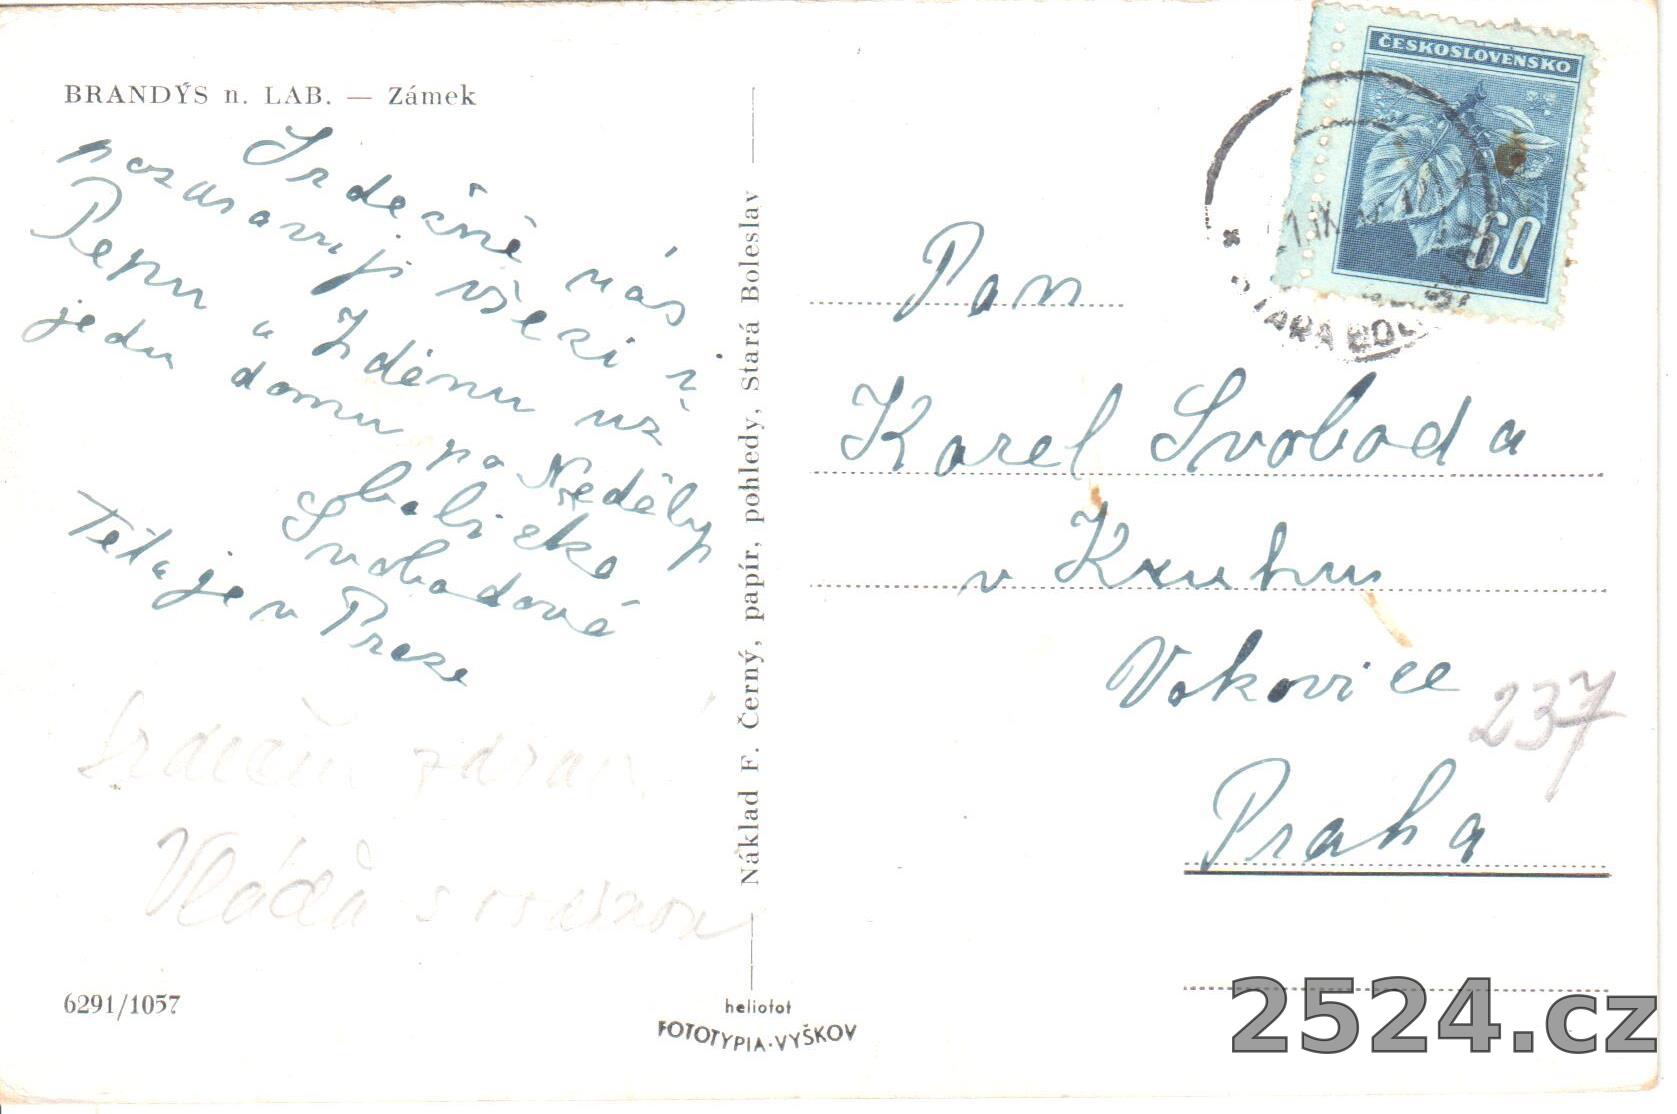 BRANDÝS n. LAB. — Zámek
Srdečně vás
pozdravují všeci i
Pepu a Zdénu už
jedu domu po Neděly
babička
Svobodová
Teta je v Praze
Srdečný zdraví
Vláďa s
6291/1057
Náklad F. Černý, papír, pohledy, Stará Boleslav
heliofot
FOTOTYPIA-VYŠKOV
ČESKOSLOVENSKO
60
STARÁ BOL
Pan
Karel Svoboda
v Kruhu
Vokovice
237
Praha
2524.cz